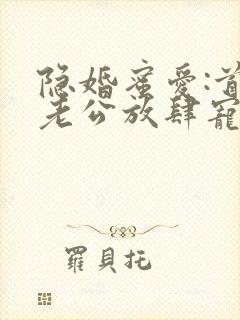 隐婚蜜爱:首
老公放肆寵
羅貝托